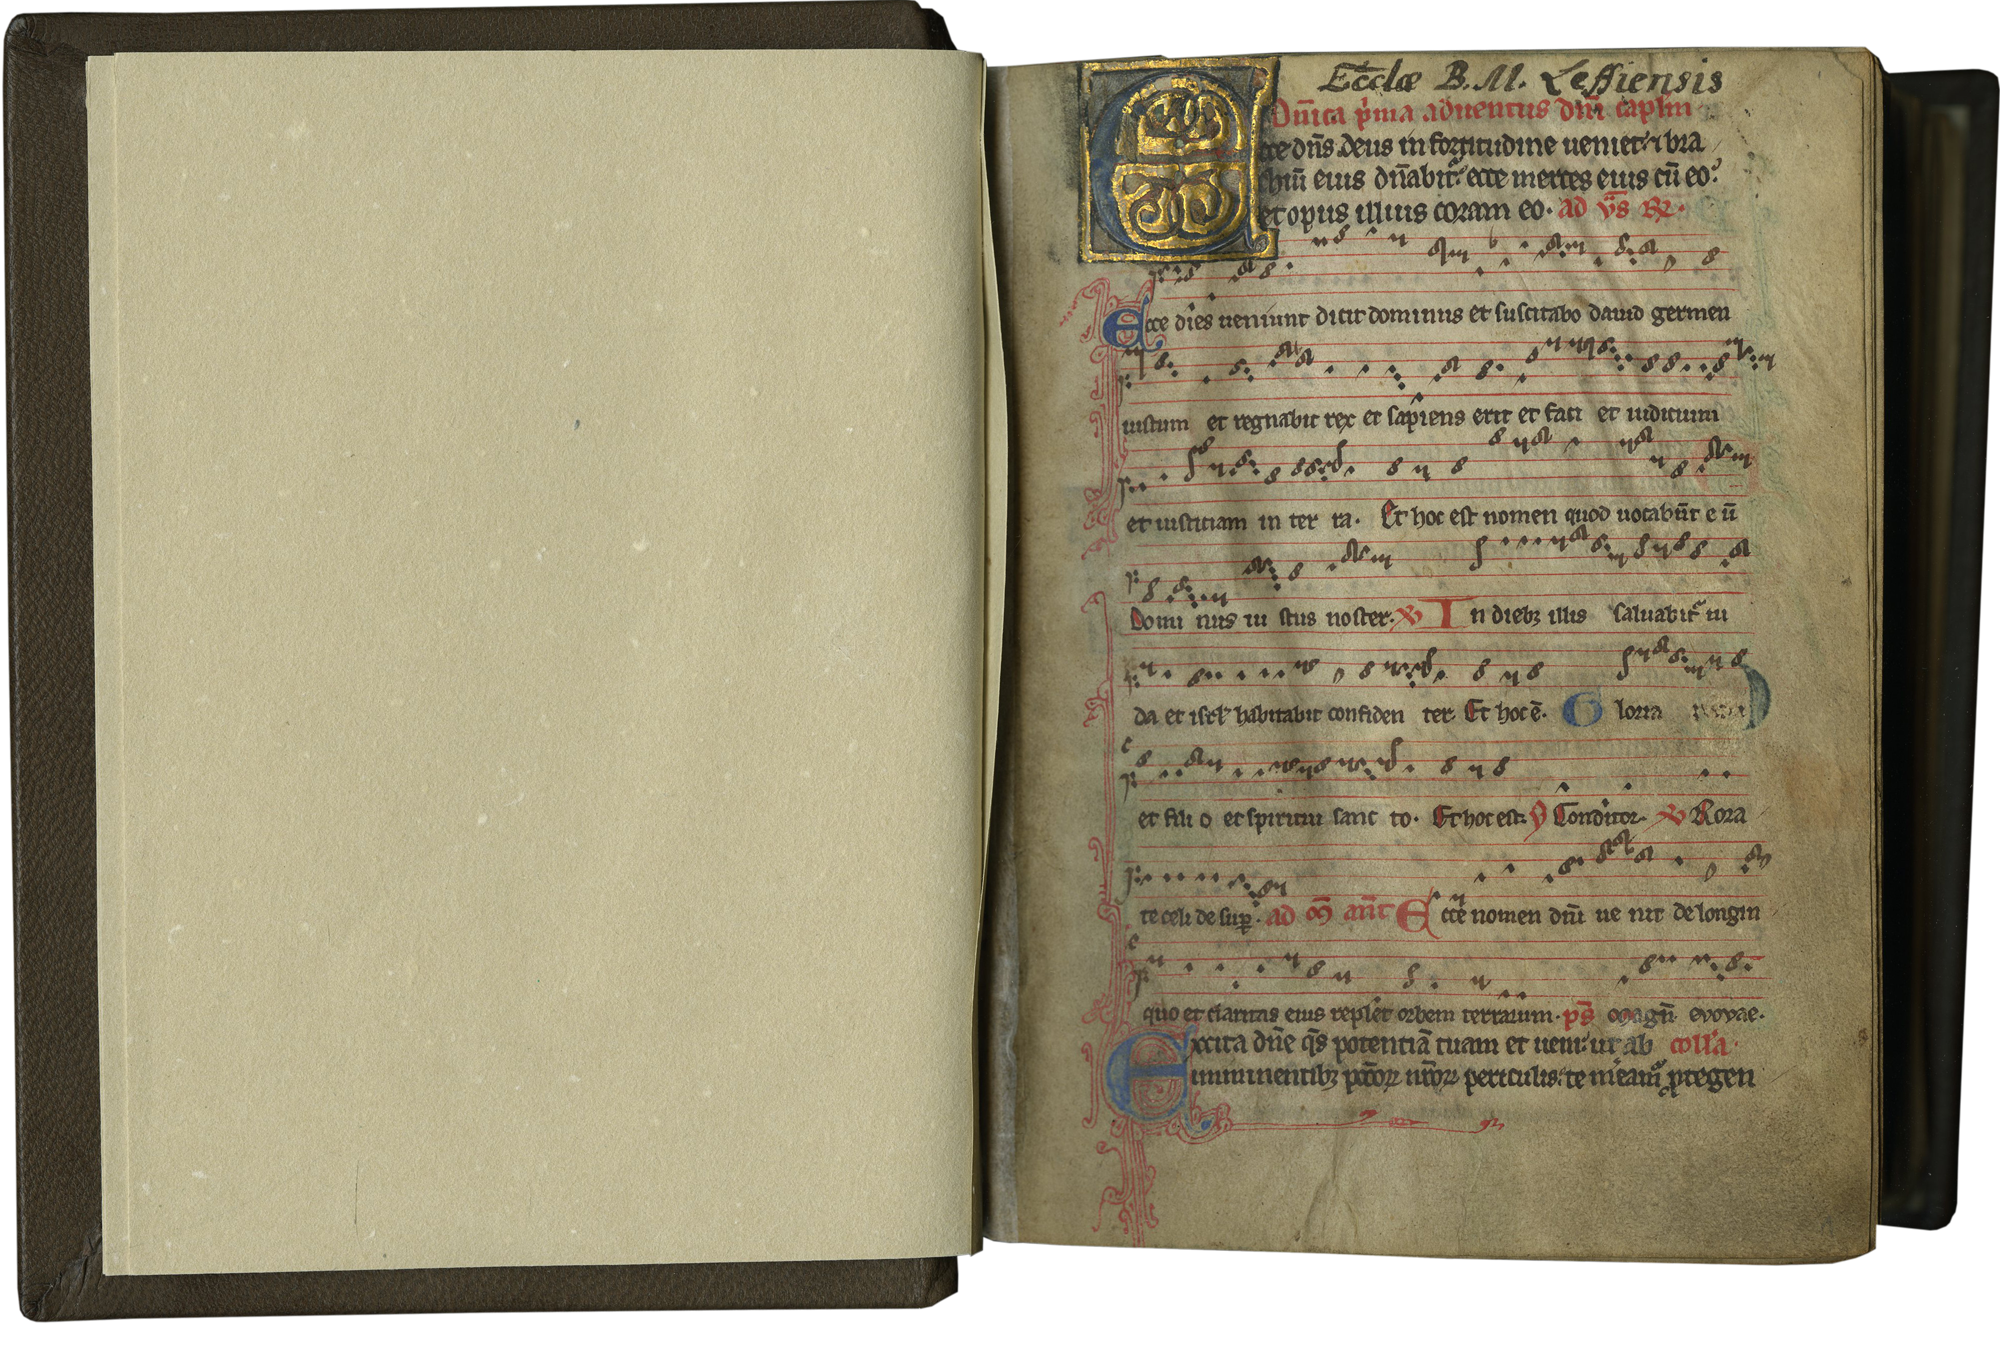 Eccłæ B. M. Leffiensis
Dn̄ica p̄ma aduentus dn̄i capłm
Ecce dn̄s deus in fortitudine ueniet ⁊ bra
chiū eius dn̄abit᷑ ecce merces eius cū eo
et opus illius coram eo. ad v̄s R̸.
Ecce dies ueniunt dicit dominus et suscitabo dauid germen
iustum et regnabit rex et sapiens erit et faci et iudicium
et iusticiam in ter ra. Et hoc est nomen quod uocabūt e ū
Domi nus iu stus noster. V̸ In dieb; illis saluabit᷑ iu
da et isrł habitabit confiden ter. Et hoc ē. Gloria
et fili o et spiritui sanc to. Et hoc est. y̸ Conditor. V̸ Rora
te celi de suꝑ. ad m̄ ant̄ Ecce nomen dn̄i ue nit de longin
quo et claritas eius replet orbem terrarum. ps̄ magn̄ evovae.
Excita dn̄e q̄s potentiā tuam et ueni. ut ab coll'a
imminentib; pccōꝝ nr̄oꝝ periculis. te mēam᷑ ꝓtegen